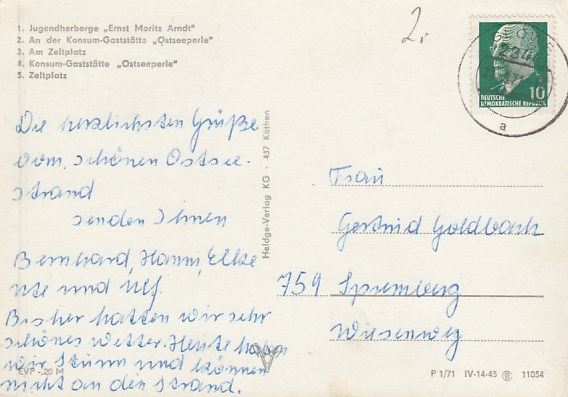 1. Jugendherberge „Ernst Moritz Arndt“
2. An der Konsum-Gaststätte „Ostseeperle“
3. Am Zeltplatz
4. Konsum-Gaststätte „Ostseeperle“
5. Zeltplatz
2,-
10
DEUTSCHE
DEMOKRATISCHE REPUBLIK
a
Die herzlichsten Grüße
vom schönen Ostsee-
strand
senden Ihnen
Bernhard, Hanni, Elke
Ute und Ulf.
Bisher hatten wir sehr
schönes Wetter. Heute haben
wir Sturm und können
nicht an den Strand.
EVP -.20 M
Heldge-Verlag KG · 437 Köthen
Frau
Gertrud Goldbach
759 Spremberg
Wiesenweg
P 1/71 IV-14-45 11054